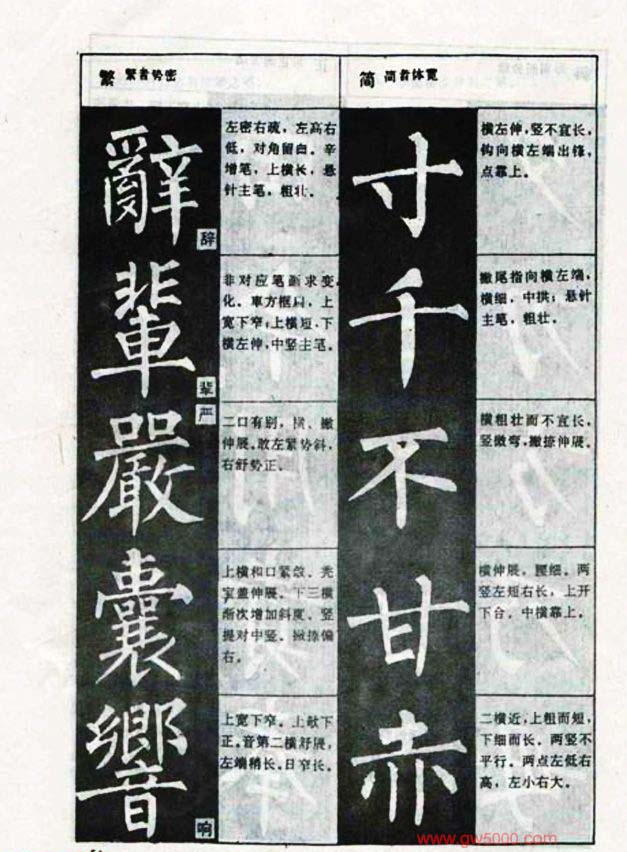 繁 繁者势密
辭
辞
左密右疏，左高右
低，对角留白。辛
增笔，上横长，悬
针主笔，粗壮。
輩
辈
非对应笔画求变
化。車方框扁，上
宽下窄；上横短，下
横左伸，中竖主笔。
嚴
严
二口有别，横、撇
伸展。敢左紧势斜，
右舒势正。
囊
上横和口紧敛。秃
宝盖伸展。下三横
渐次增加斜度。竖
提对中竖。撇捺偏
右。
響
响
上宽下窄。上欹下
正。音第二横舒展，
左端稍长。日窄长。
简 简者体宽
寸
横左伸，竖不宜长，
钩向横左端出锋，
点靠上。
千
撇尾指向横左端，
横细，中拱；悬针
主笔，粗壮。
不
横粗壮而不宜长，
竖微弯，撇捺伸展。
甘
横伸展，腰细。两
竖左短右长，上开
下合。中横靠上。
赤
二横近，上粗而短，
下细而长。两竖不
平行。两点左低右
高，左小右大。
www.gw5000.com